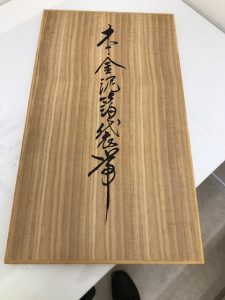 本金泥箔袋帯